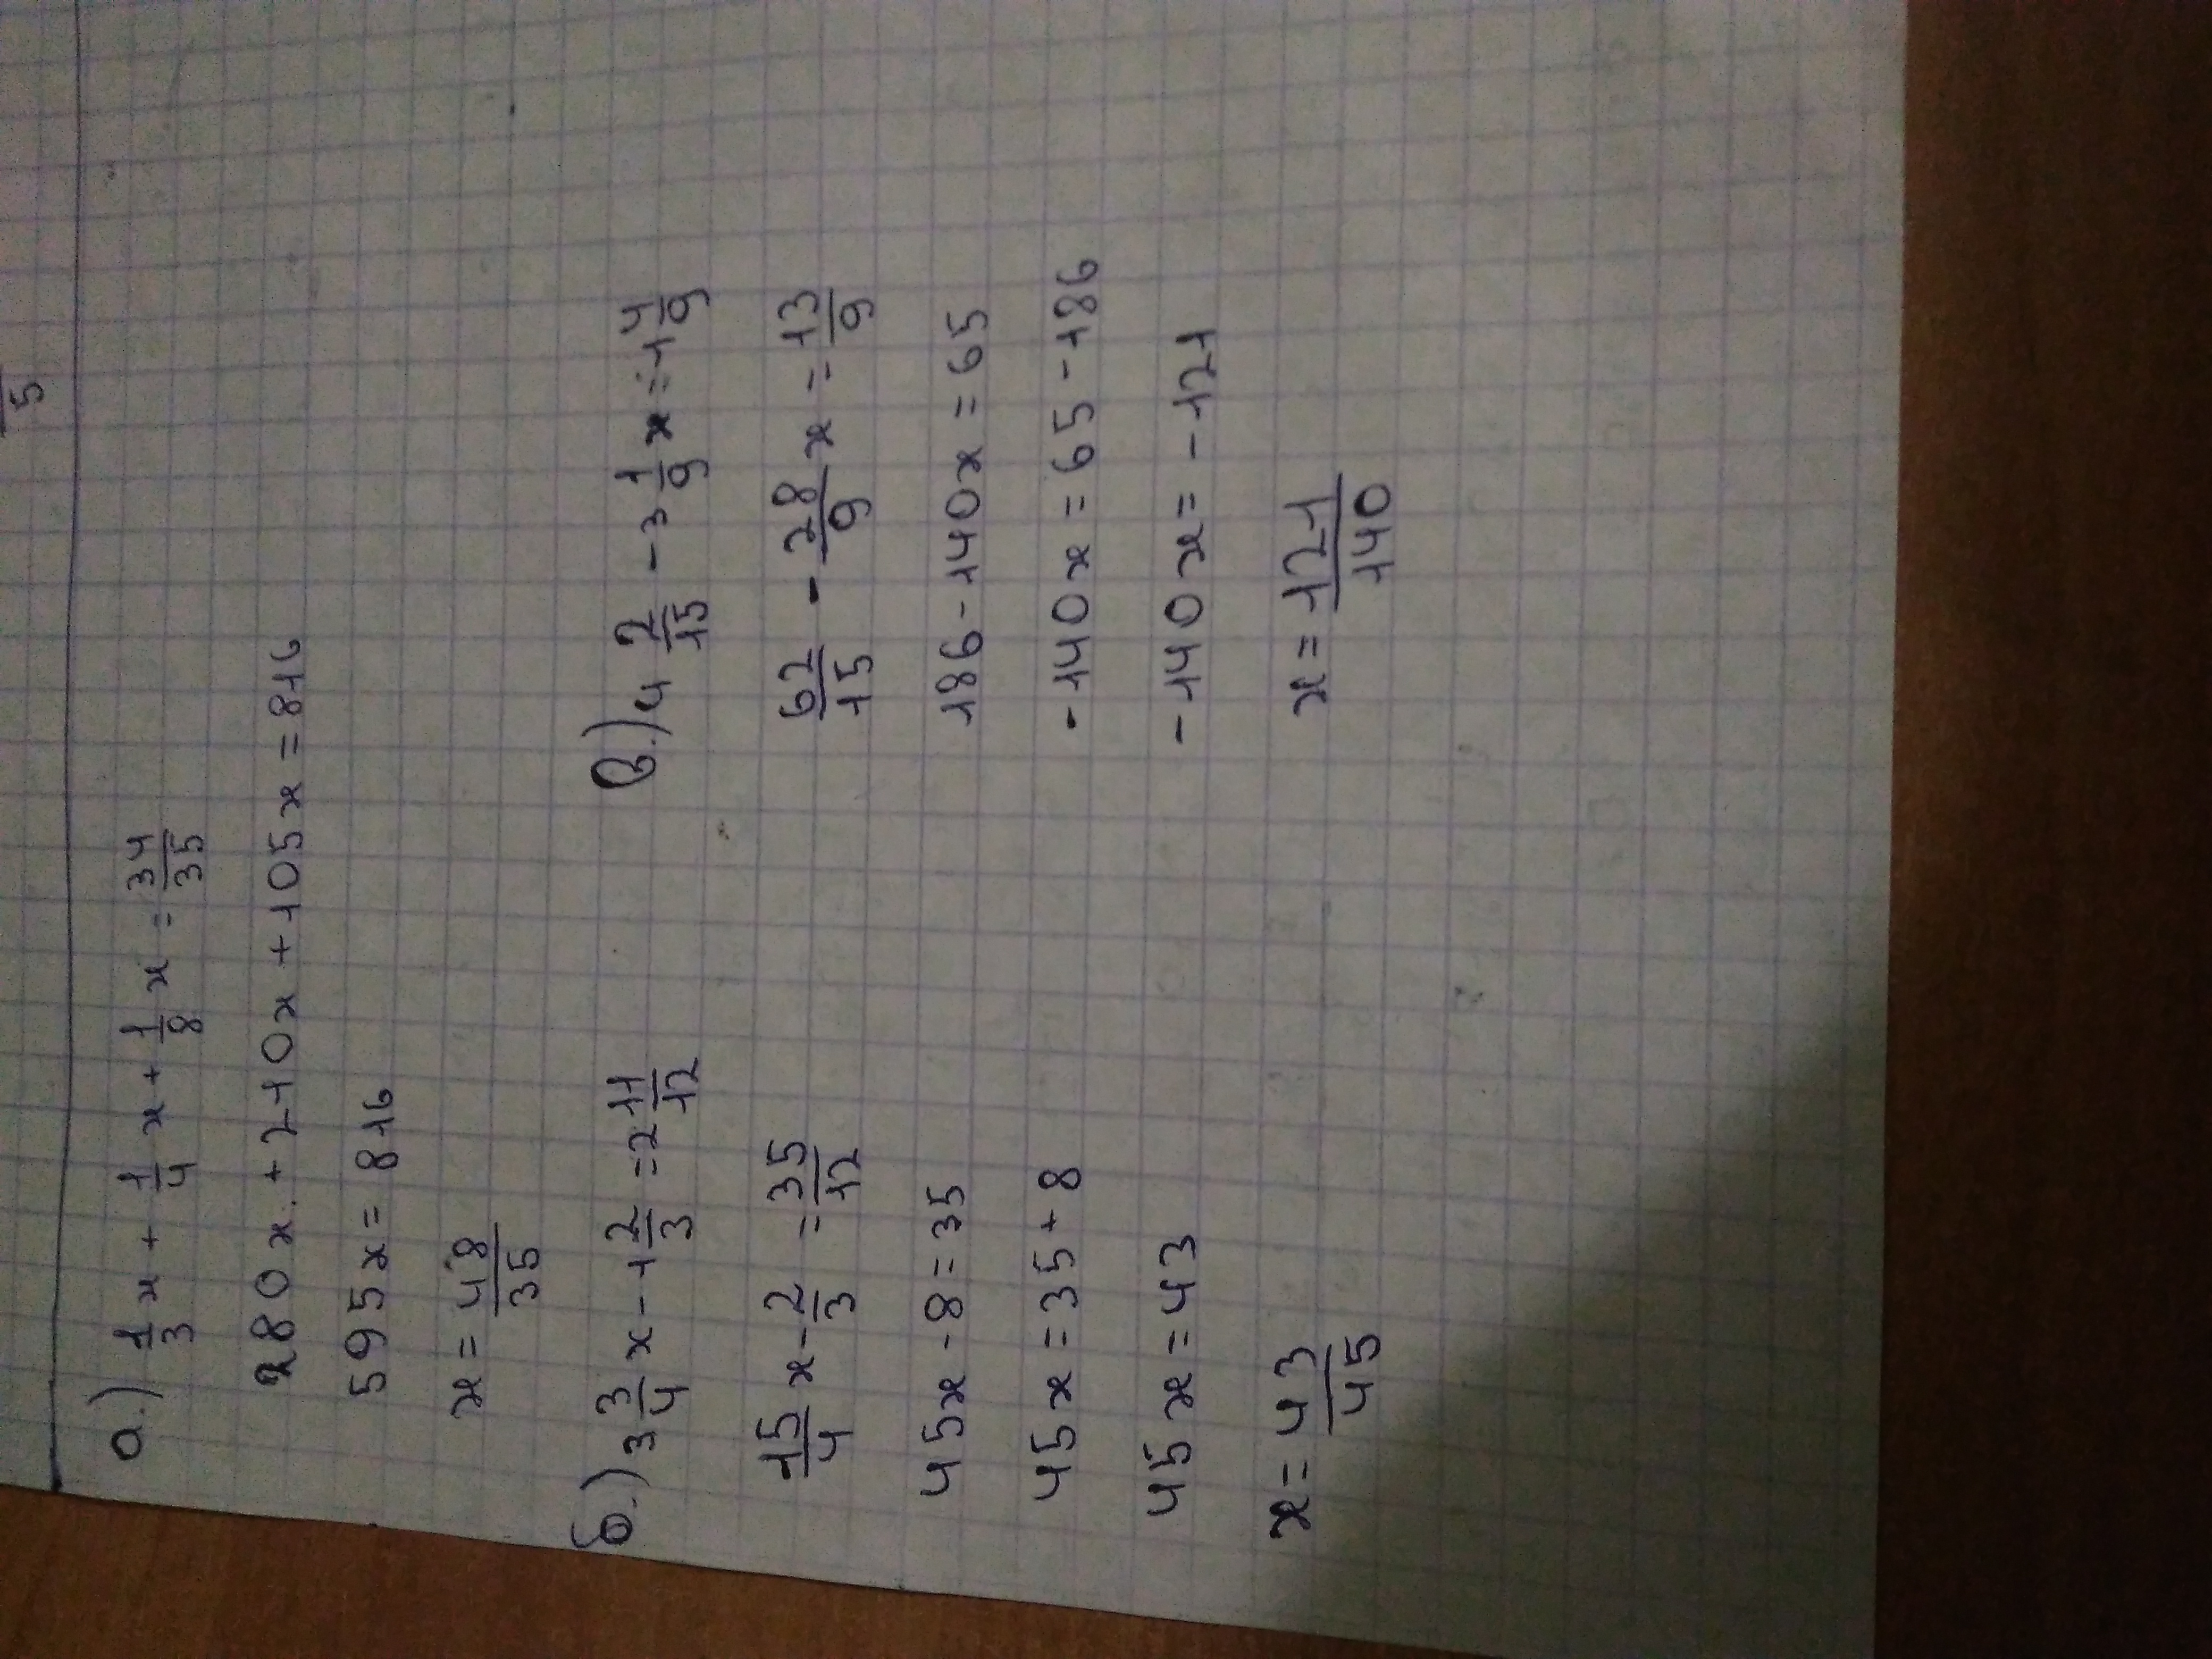 5
а.) 1/3 x + 1/4 x + 1/8 x = 34/35
280x. + 210x + 105x = 816
595x = 816
x = 48/35
б.) 3 3/4 x - 1 2/3 = 2 11/12
15/4 x - 2/3 = 35/12
45x - 8 = 35
45x = 35 + 8
45x = 43
x = 43/45
в.) 4 2/15 - 3 1/9 x = 1 4/9
62/15 - 28/9 x = 13/9
186 - 140x = 65
-140x = 65 - 186
-140x = -121
x = 121/140